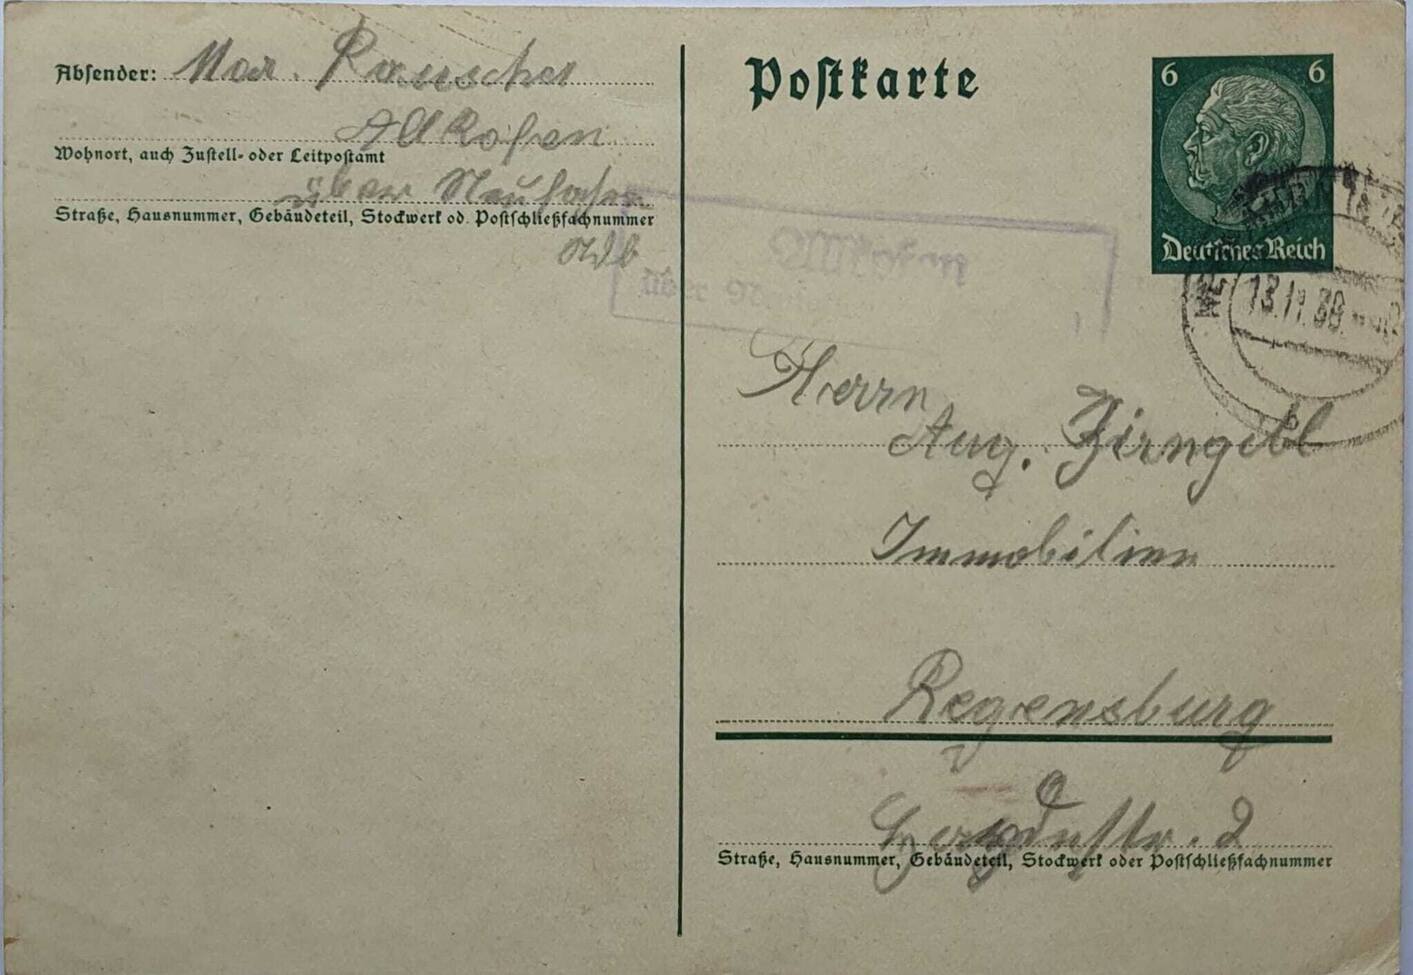 Absender: Mar. Rauscher
Allkofen
Wohnort, auch Zustell- oder Leitpostamt
über Neufahrn
Straße, Hausnummer, Gebäudeteil, Stockwerk od. Postschließfachnummer
Ndb
Postkarte
6 6
Deutsches Reich
13.11.38
Allkofen
über
Herrn
Aug. Zirngibl
Immobilien
Regensburg
2
Straße, Hausnummer, Gebäudeteil, Stockwerk oder Postschließfachnummer